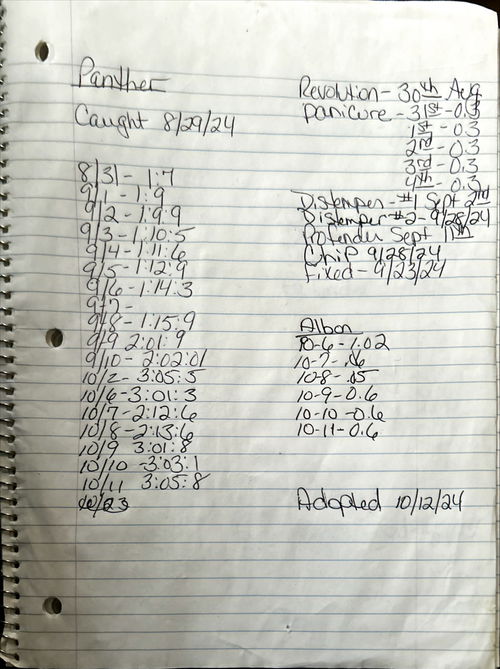 Panther
Caught 8/29/24
8/31 - 1:7
9/1 - 1:9
9/2 - 1:9:9
9/3 - 1:10:5
9/4 - 1:11:6
9/5 - 1:12:9
9/6 - 1:14:3
9/7 -
9/8 - 1:15:9
9/9 2:01:9
9/10 - 2:02:01
10/2 - 3:05:5
10/6 - 3:01:3
10/7 - 2:12:6
10/8 - 2:13:6
10/9 3:01:8
10/10 - 3:03:1
10/11 3:05:8
Revolution - 30th Aug
panicure - 31st - 0.3
1st - 0.3
2nd - 0.3
3rd - 0.3
4th - 0.3
Distemper - #1 Sept 2nd
Distemper #2 - 9/28/24
Profender Sept 11th
Chip 9/28/24
Fixed - 9/23/24
Albon
10-6 - 1.02
10-7 - .06
10-8 - .05
10-9 - 0.6
10-10 - 0.6
10-11 - 0.6
Adopted 10/12/24